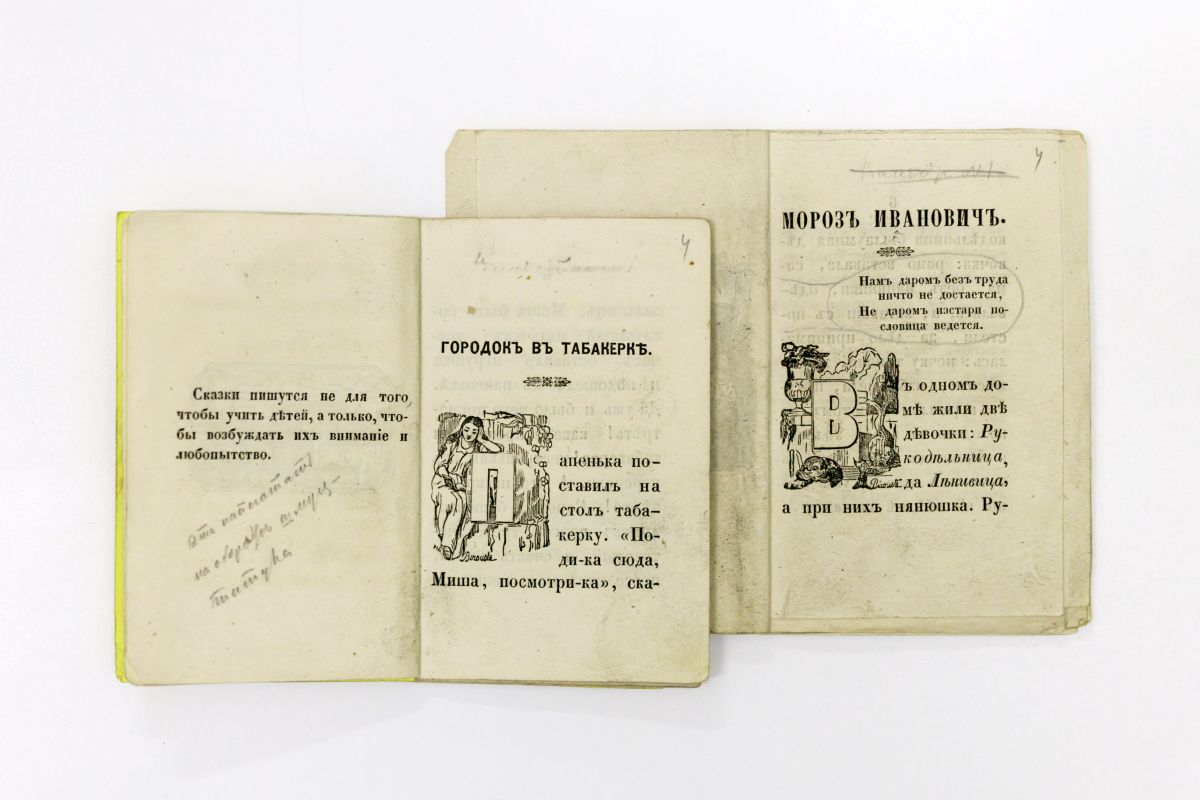 Сказки пишутся не для того
чтобы учить дѣтей, а только, что-
бы возбуждать ихъ вниманіе и
любопытство.
это напечатать
на оборотѣ шмуц-
титула
4
ГОРОДОКЪ ВЪ ТАБАКЕРКѢ.
Папенька по-
ставилъ на
столъ таба-
керку. «По-
ди-ка сюда,
Миша, посмотри-ка», ска-
4
МОРОЗЪ ИВАНОВИЧЪ.
Намъ даромъ безъ труда
ничто не достается,
Не даромъ изстари по-
словица ведется.
Въ одномъ до-
мѣ жили двѣ
дѣвочки: Ру-
кодѣльница,
да Лѣнивица,
а при нихъ нянюшка. Ру-